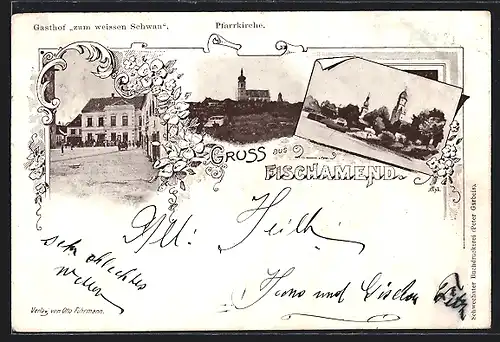 Gasthof „zum weissen Schwan“.
Pfarrkirche.
GRUSS aus
FISCHAMEND.
All: Heil!
sehr schlechtes
Wetter
und Gisela
Verlag von Otto Fuhrmann.
Schwechater Buchdruckerei (Peter Gürbeils).